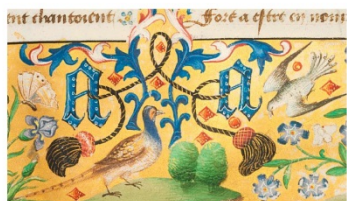 ent chantoient
fort a estre en nom
a a